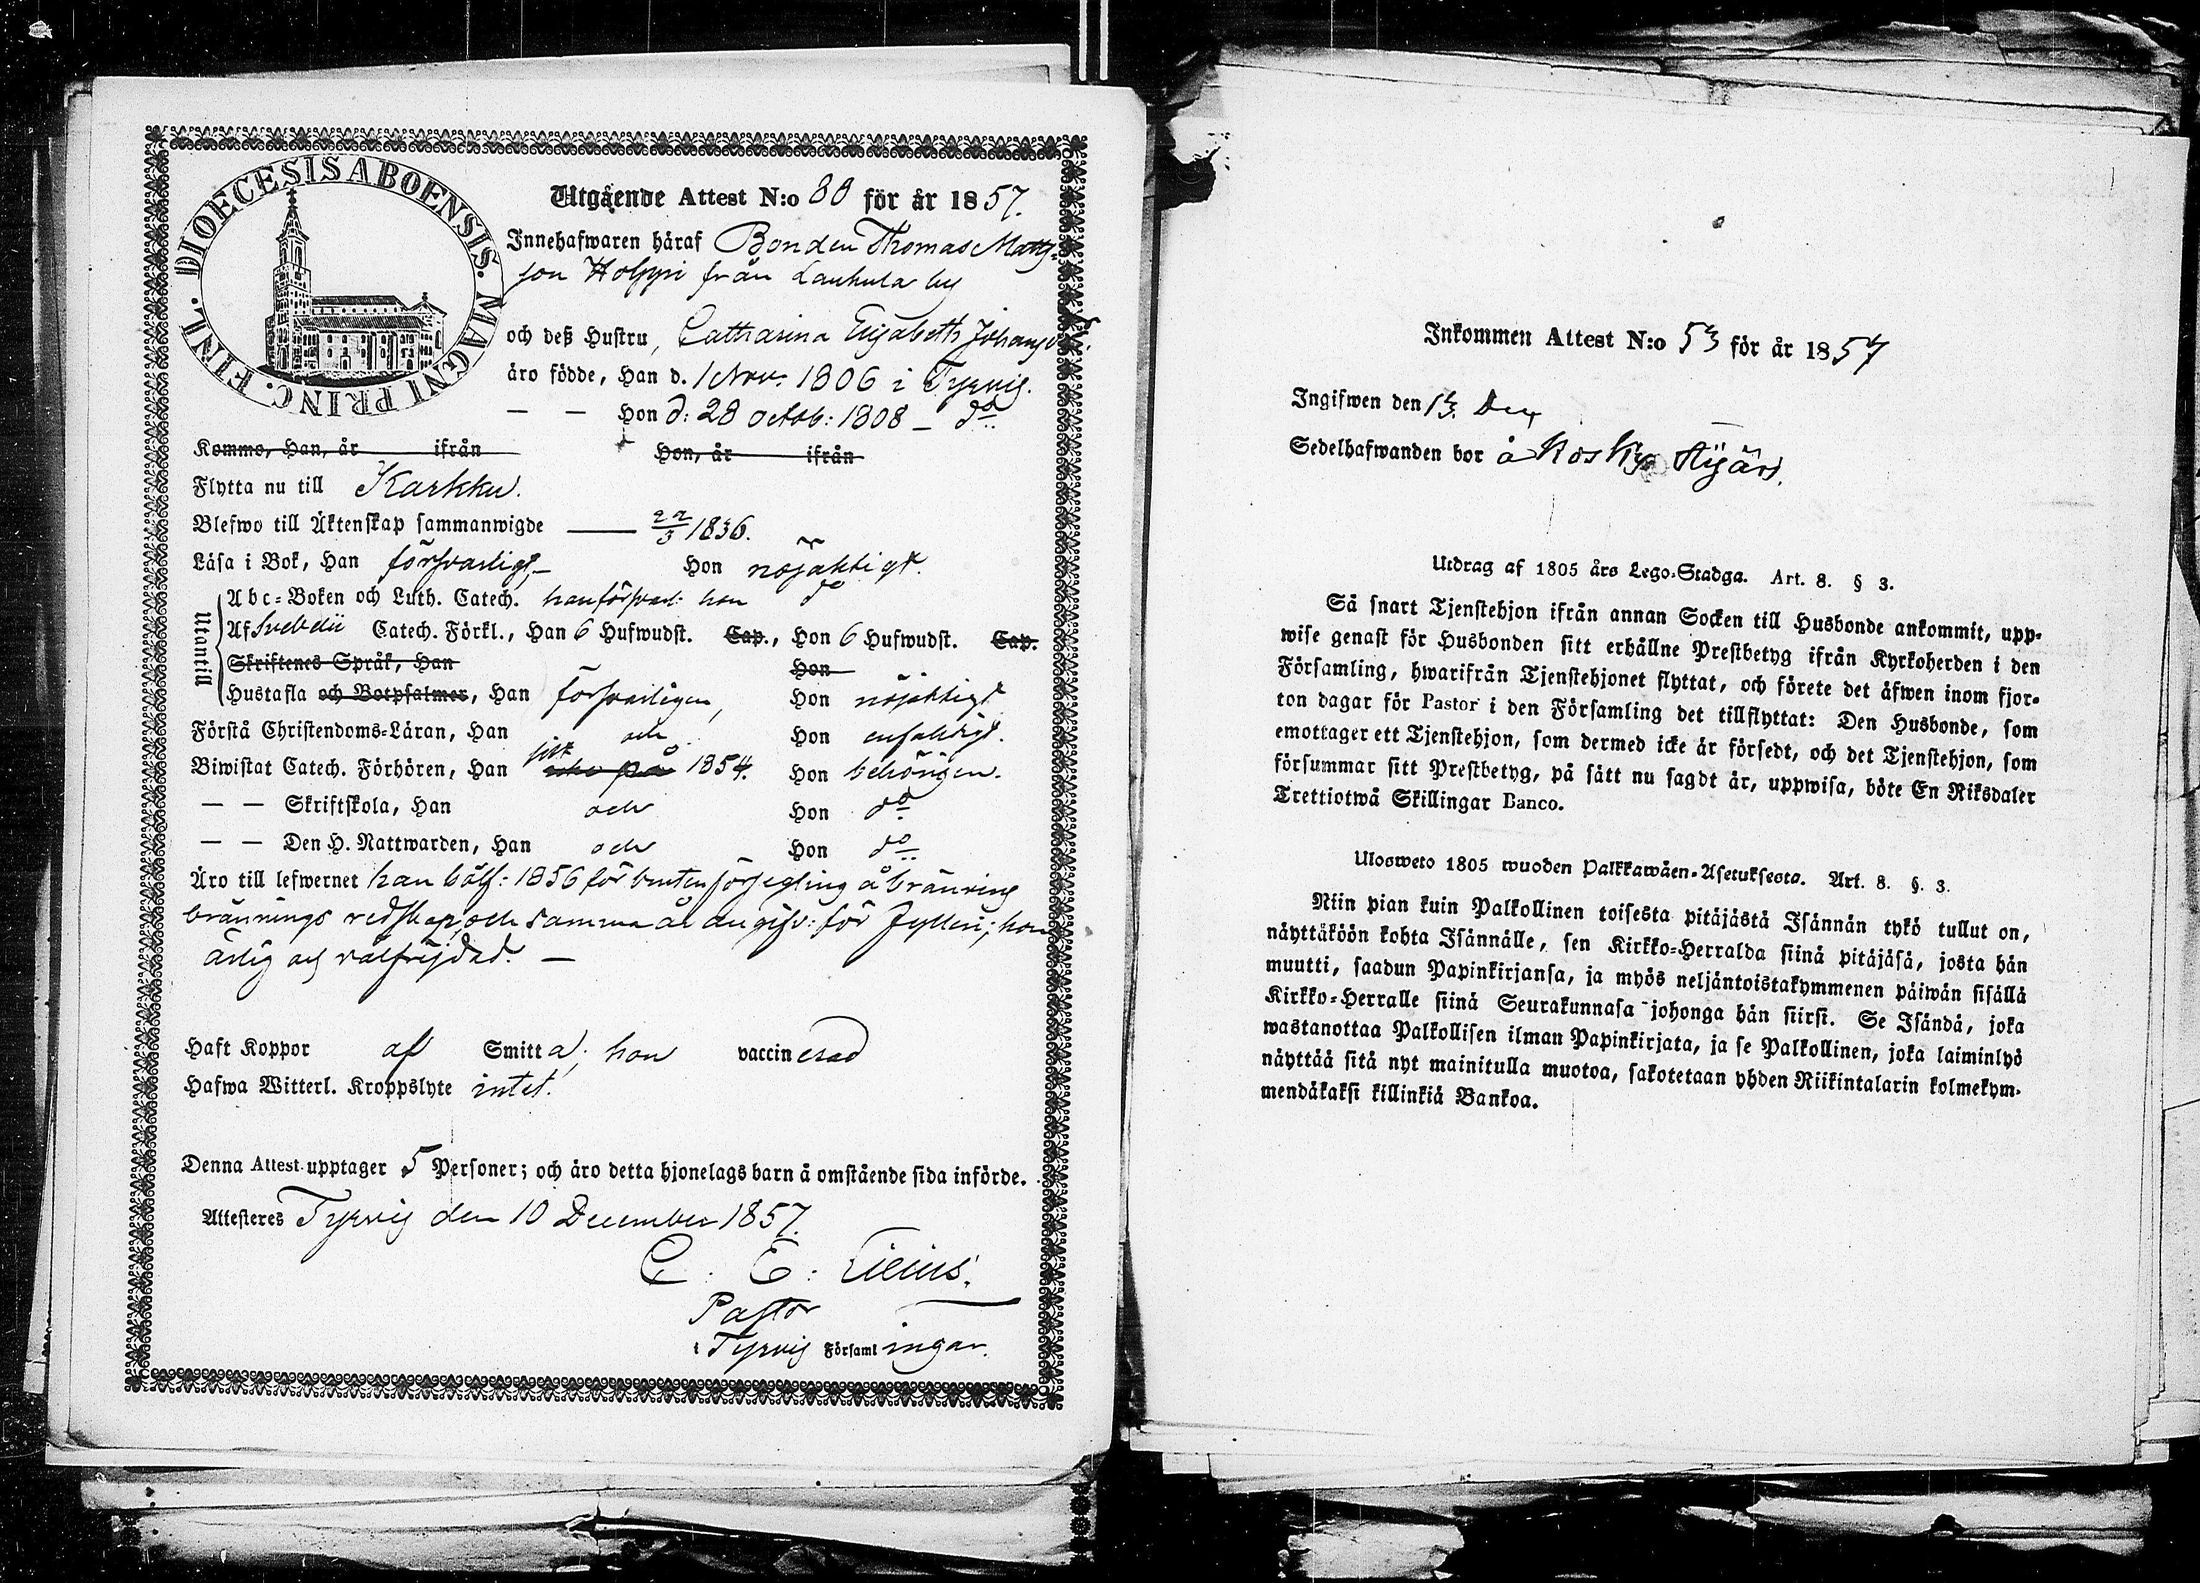 DIOECESIS ABOENSIS. MAGNI PRINC. FINL.
Utgående Attest N:o 88 för år 1857.
Innehafwaren häraf Bonden Thomas Matts-
son Hoppi från Laukula by
och deß Hustru, Catharina Elisabeth Johansd:
äro födde, Han d. 1 Nov. 1806 i Tyrvis.
— — Hon d: 28 octob: 1808 — do
Kommo, Han, år ifrån Hon, år ifrån
Flytta nu till Karkku.
Blefwo till Äktenskap sammanwigde — 22/3 1836.
Läsa i Bok, Han försvarligt — Hon nöjaktigt.
Utantill
Abc-Boken och Luth. Catech. han försvarl: hon do
Af Svebelii Catech. Förkl., Han 6 Hufwudst. Cap., Hon 6 Hufwudst. Cap.
Skriftenes Språk, Han Hon
Hustafla och Botpsalmer, Han försvarligen, Hon nöjaktigt
Förstå Christendoms-Läran, Han och Hon enfaldigt.
Biwistat Catech. Förhören, Han sist 1854. Hon behörigen.
— — Skriftskola, Han och Hon do
— — Den H. Nattwarden, Han och Hon do
Äro till lefwernet han bötf: 1856 för bruten försegling å bränvins
bränningsredskap, och samma år angifv: för fylleri; hon
ärlig och välfrejdad. —
Haft Koppor af Smitta; hon vaccinerad
Hafwa Witterl. Kroppslyte intet.
Denna Attest upptager 5 Personer; och äro detta hjonelags barn å omstående sida införde.
Attesteres Tyrvis den 10 December 1857.
C. E. Lilius.
Pastor
i Tyrvis Församlingar.
Inkommen Attest N:o 53 för år 1857
Ingifwen den 13. Dec
Sedelhafwanden bor å Koskis
Utdrag af 1805 års Lego-Stadga. Art. 8. § 3.
Så snart Tjenstehjon ifrån annan Socken till Husbonde ankommit, upp-
wise genast för Husbonden sitt erhållne Prestbetyg ifrån Kyrkoherden i den
Församling, hwarifrån Tjenstehjonet flyttat, och förete det äfwen inom fjor-
ton dagar för Pastor i den Församling det tillflyttat: Den Husbonde, som
emottager ett Tjenstehjon, som dermed icke är försedt, och det Tjenstehjon, som
försummar sitt Prestbetyg, på sätt nu sagdt är, uppwisa, böte En Riksdaler
Trettiotwå Skillingar Banco.
Ulosweto 1805 wuoden Palkkawäen-Asetuksesta. Art. 8. §. 3.
Niin pian kuin Palkollinen toisesta pitäjästä Isännän tykö tullut on,
näyttäköön kohta Isännälle, sen Kirkko-Herralda siinä pitäjäsä, josta hän
muutti, saadun Papinkirjansa, ja myös neljäntoistakymmenen päiwän sisällä
Kirkko-Herralle siinä Seurakunnasa johonga hän siirsi. Se Isändä, joka
wastanottaa Palkollisen ilman Papinkirjata, ja se Palkollinen, joka laiminlyö
näyttää sitä nyt mainitulla muotoa, sakotetaan yhden Riikintalarin kolmekym-
mendäkaksi killinkiä Bankoa.